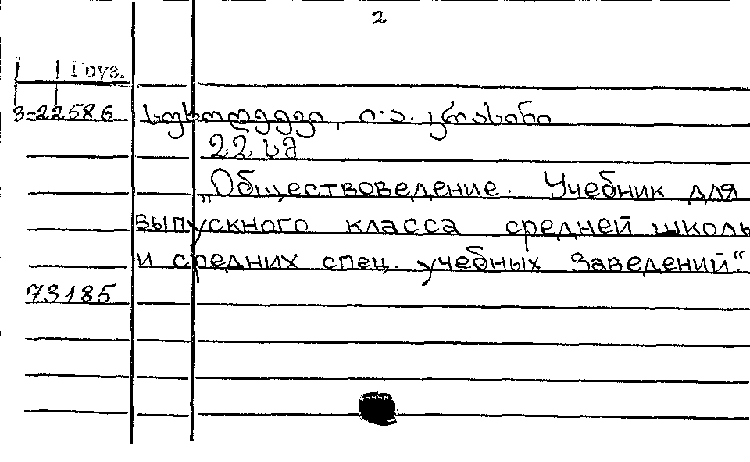 2
Груз.
3-22586 სუხოდეევი, ი.ა. კრასინი
22 სმ
„Обществоведение. Учебник для
выпускного класса средней школы
и средних спец. учебных заведений“.
73185